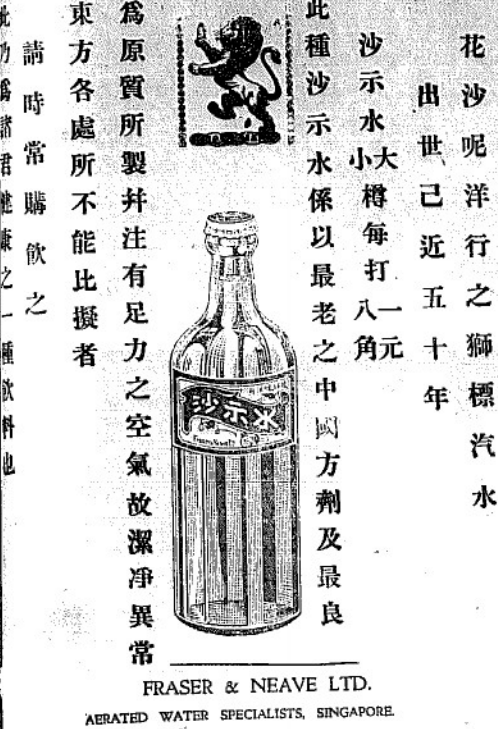 花沙呢洋行之獅標汽水
出世已近五十年
沙示水大小樽每打一元八角
此種沙示水係以最老之中國方劑及最良
為原質所製并注有足力之空氣故潔淨異常
東方各處所不能比擬者
請時常購飲之
此乃爲諸君健康之一種飲料也
沙示水
FRASER & NEAVE LTD.
AERATED WATER SPECIALISTS, SINGAPORE.